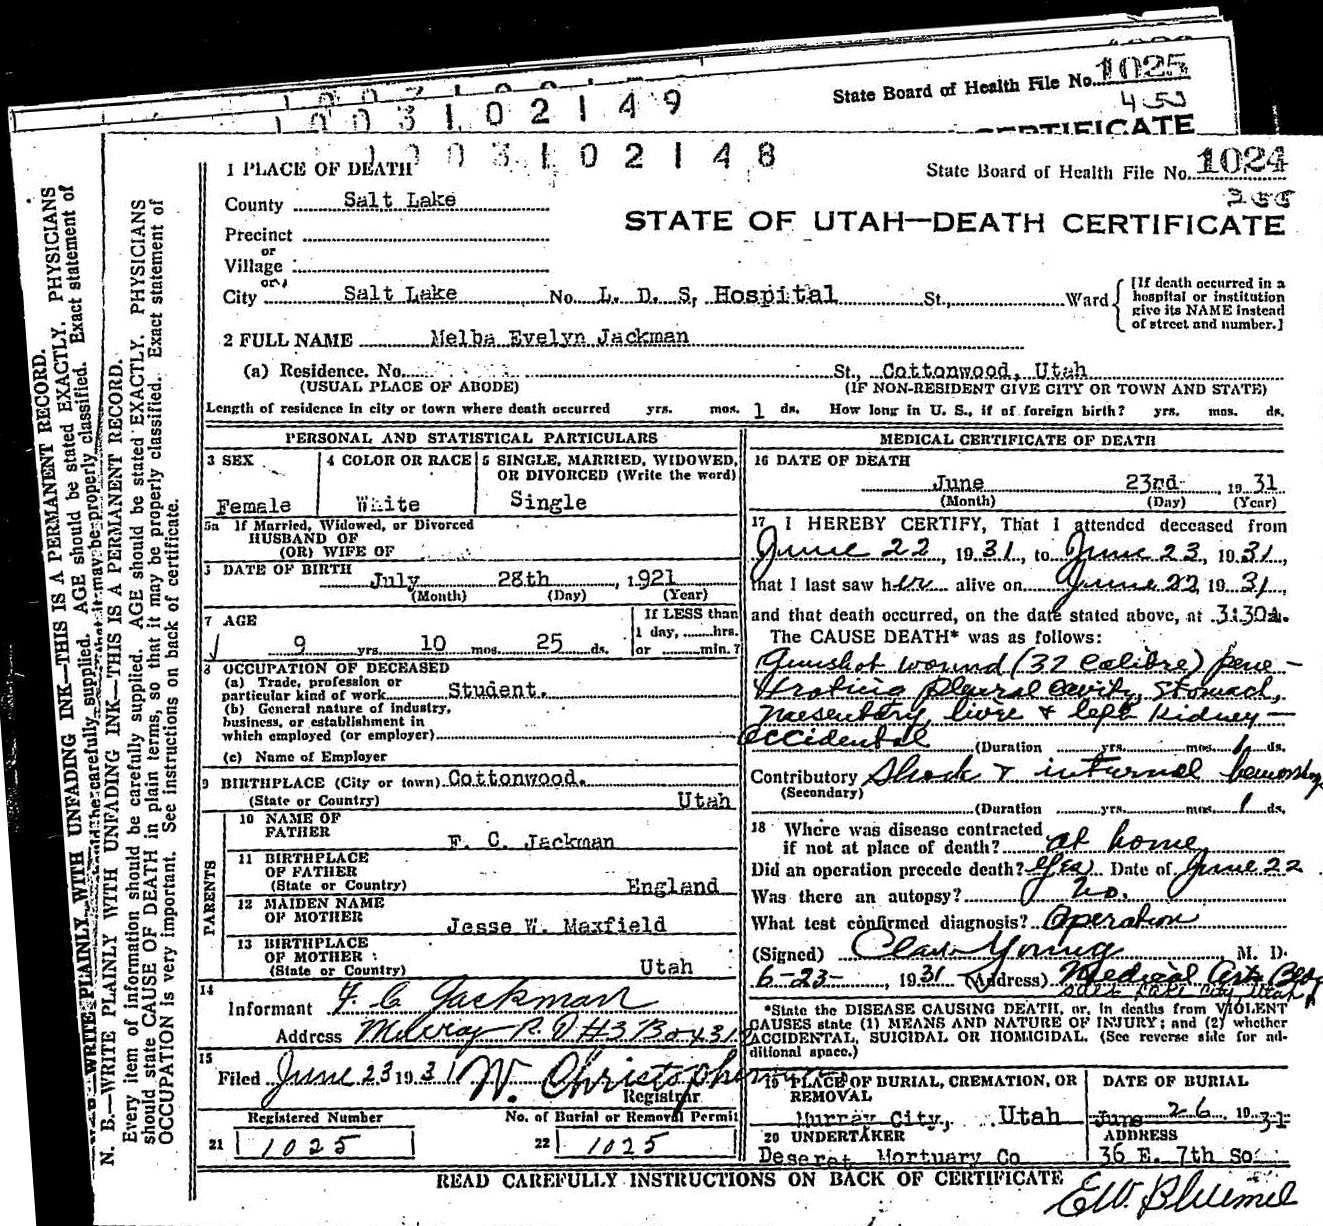 State Board of Health File No. 1025
453
1003102149
CERTIFICATE
1003102148
State Board of Health File No. 1024
STATE OF UTAH—DEATH CERTIFICATE
1 PLACE OF DEATH
County Salt Lake
Precinct
or
Village
or
City Salt Lake No. L. D. S. Hospital St., Ward
[If death occurred in a hospital or institution give its NAME instead of street and number.]
2 FULL NAME Melba Evelyn Jackman
(a) Residence. No. St., Cottonwood, Utah
(USUAL PLACE OF ABODE) (IF NON-RESIDENT GIVE CITY OR TOWN AND STATE)
Length of residence in city or town where death occurred yrs. mos. 1 ds. How long in U. S., if of foreign birth? yrs. mos. ds.
PERSONAL AND STATISTICAL PARTICULARS
3 SEX 4 COLOR OR RACE 5 SINGLE, MARRIED, WIDOWED,
OR DIVORCED (Write the word)
Female White Single
5a If Married, Widowed, or Divorced
HUSBAND OF
(OR) WIFE OF
DATE OF BIRTH
July 28th, 1921
(Month) (Day) (Year)
7 AGE If LESS than
1 day, hrs.
9 yrs. 10 mos. 25 ds. or min.?
8 OCCUPATION OF DECEASED
(a) Trade, profession or
particular kind of work Student.
(b) General nature of industry,
business, or establishment in
which employed (or employer)
(c) Name of Employer
9 BIRTHPLACE (City or town) Cottonwood.
(State or Country) Utah
PARENTS
10 NAME OF
FATHER F. C. Jackman
11 BIRTHPLACE
OF FATHER
(State or Country) England
12 MAIDEN NAME
OF MOTHER Jesse W. Maxfield
13 BIRTHPLACE
OF MOTHER
(State or Country) Utah
14
Informant F. C. Jackman
Address Murray R. D #3 Box 431
15
Filed June 23 1931 W. Christopherson
Registrar
Registered Number No. of Burial or Removal Permit
21 1025 22 1025
MEDICAL CERTIFICATE OF DEATH
16 DATE OF DEATH
June 23rd 1931
(Month) (Day) (Year)
17 I HEREBY CERTIFY, That I attended deceased from
June 22, 1931, to June 23, 1931,
that I last saw her alive on June 22, 1931,
and that death occurred, on the date stated above, at 3:30a.
The CAUSE DEATH* was as follows:
Gunshot wound (32 Calibre) pene-
trating pleural cavity, stomach,
mesentary, liver & left kidney—
accidental (Duration yrs. mos. 1 ds.
Contributory Shock & internal hemorrhage
(Secondary)
(Duration yrs. mos. 1 ds.
18 Where was disease contracted
if not at place of death? at home
Did an operation precede death? Yes Date of June 22
Was there an autopsy? No.
What test confirmed diagnosis? Operation
(Signed) Clark Young M. D.
6-23-, 1931 (Address) Medical Arts Bldg
Salt Lake City, Utah
*State the DISEASE CAUSING DEATH, or, in deaths from VIOLENT
CAUSES state (1) MEANS AND NATURE OF INJURY; and (2) whether
ACCIDENTAL, SUICIDAL OR HOMICIDAL. (See reverse side for ad-
ditional space.)
19 PLACE OF BURIAL, CREMATION, OR
REMOVAL
Murray City, Utah
DATE OF BURIAL
June 26, 1931
20 UNDERTAKER
Deseret Mortuary Co
ADDRESS
36 E. 7th So.
READ CAREFULLY INSTRUCTIONS ON BACK OF CERTIFICATE
E.W. Bluemel
WRITE PLAINLY, WITH UNFADING INK—THIS IS A PERMANENT RECORD.
carefully supplied. AGE should be stated EXACTLY. PHYSICIANS
may be properly classified. Exact statement of
N. B.—WRITE PLAINLY WITH UNFADING INK—THIS IS A PERMANENT RECORD.
Every item of information should be carefully supplied. AGE should be stated EXACTLY. PHYSICIANS
should state CAUSE OF DEATH in plain terms, so that it may be properly classified. Exact statement of
OCCUPATION is very important. See instructions on back of certificate.